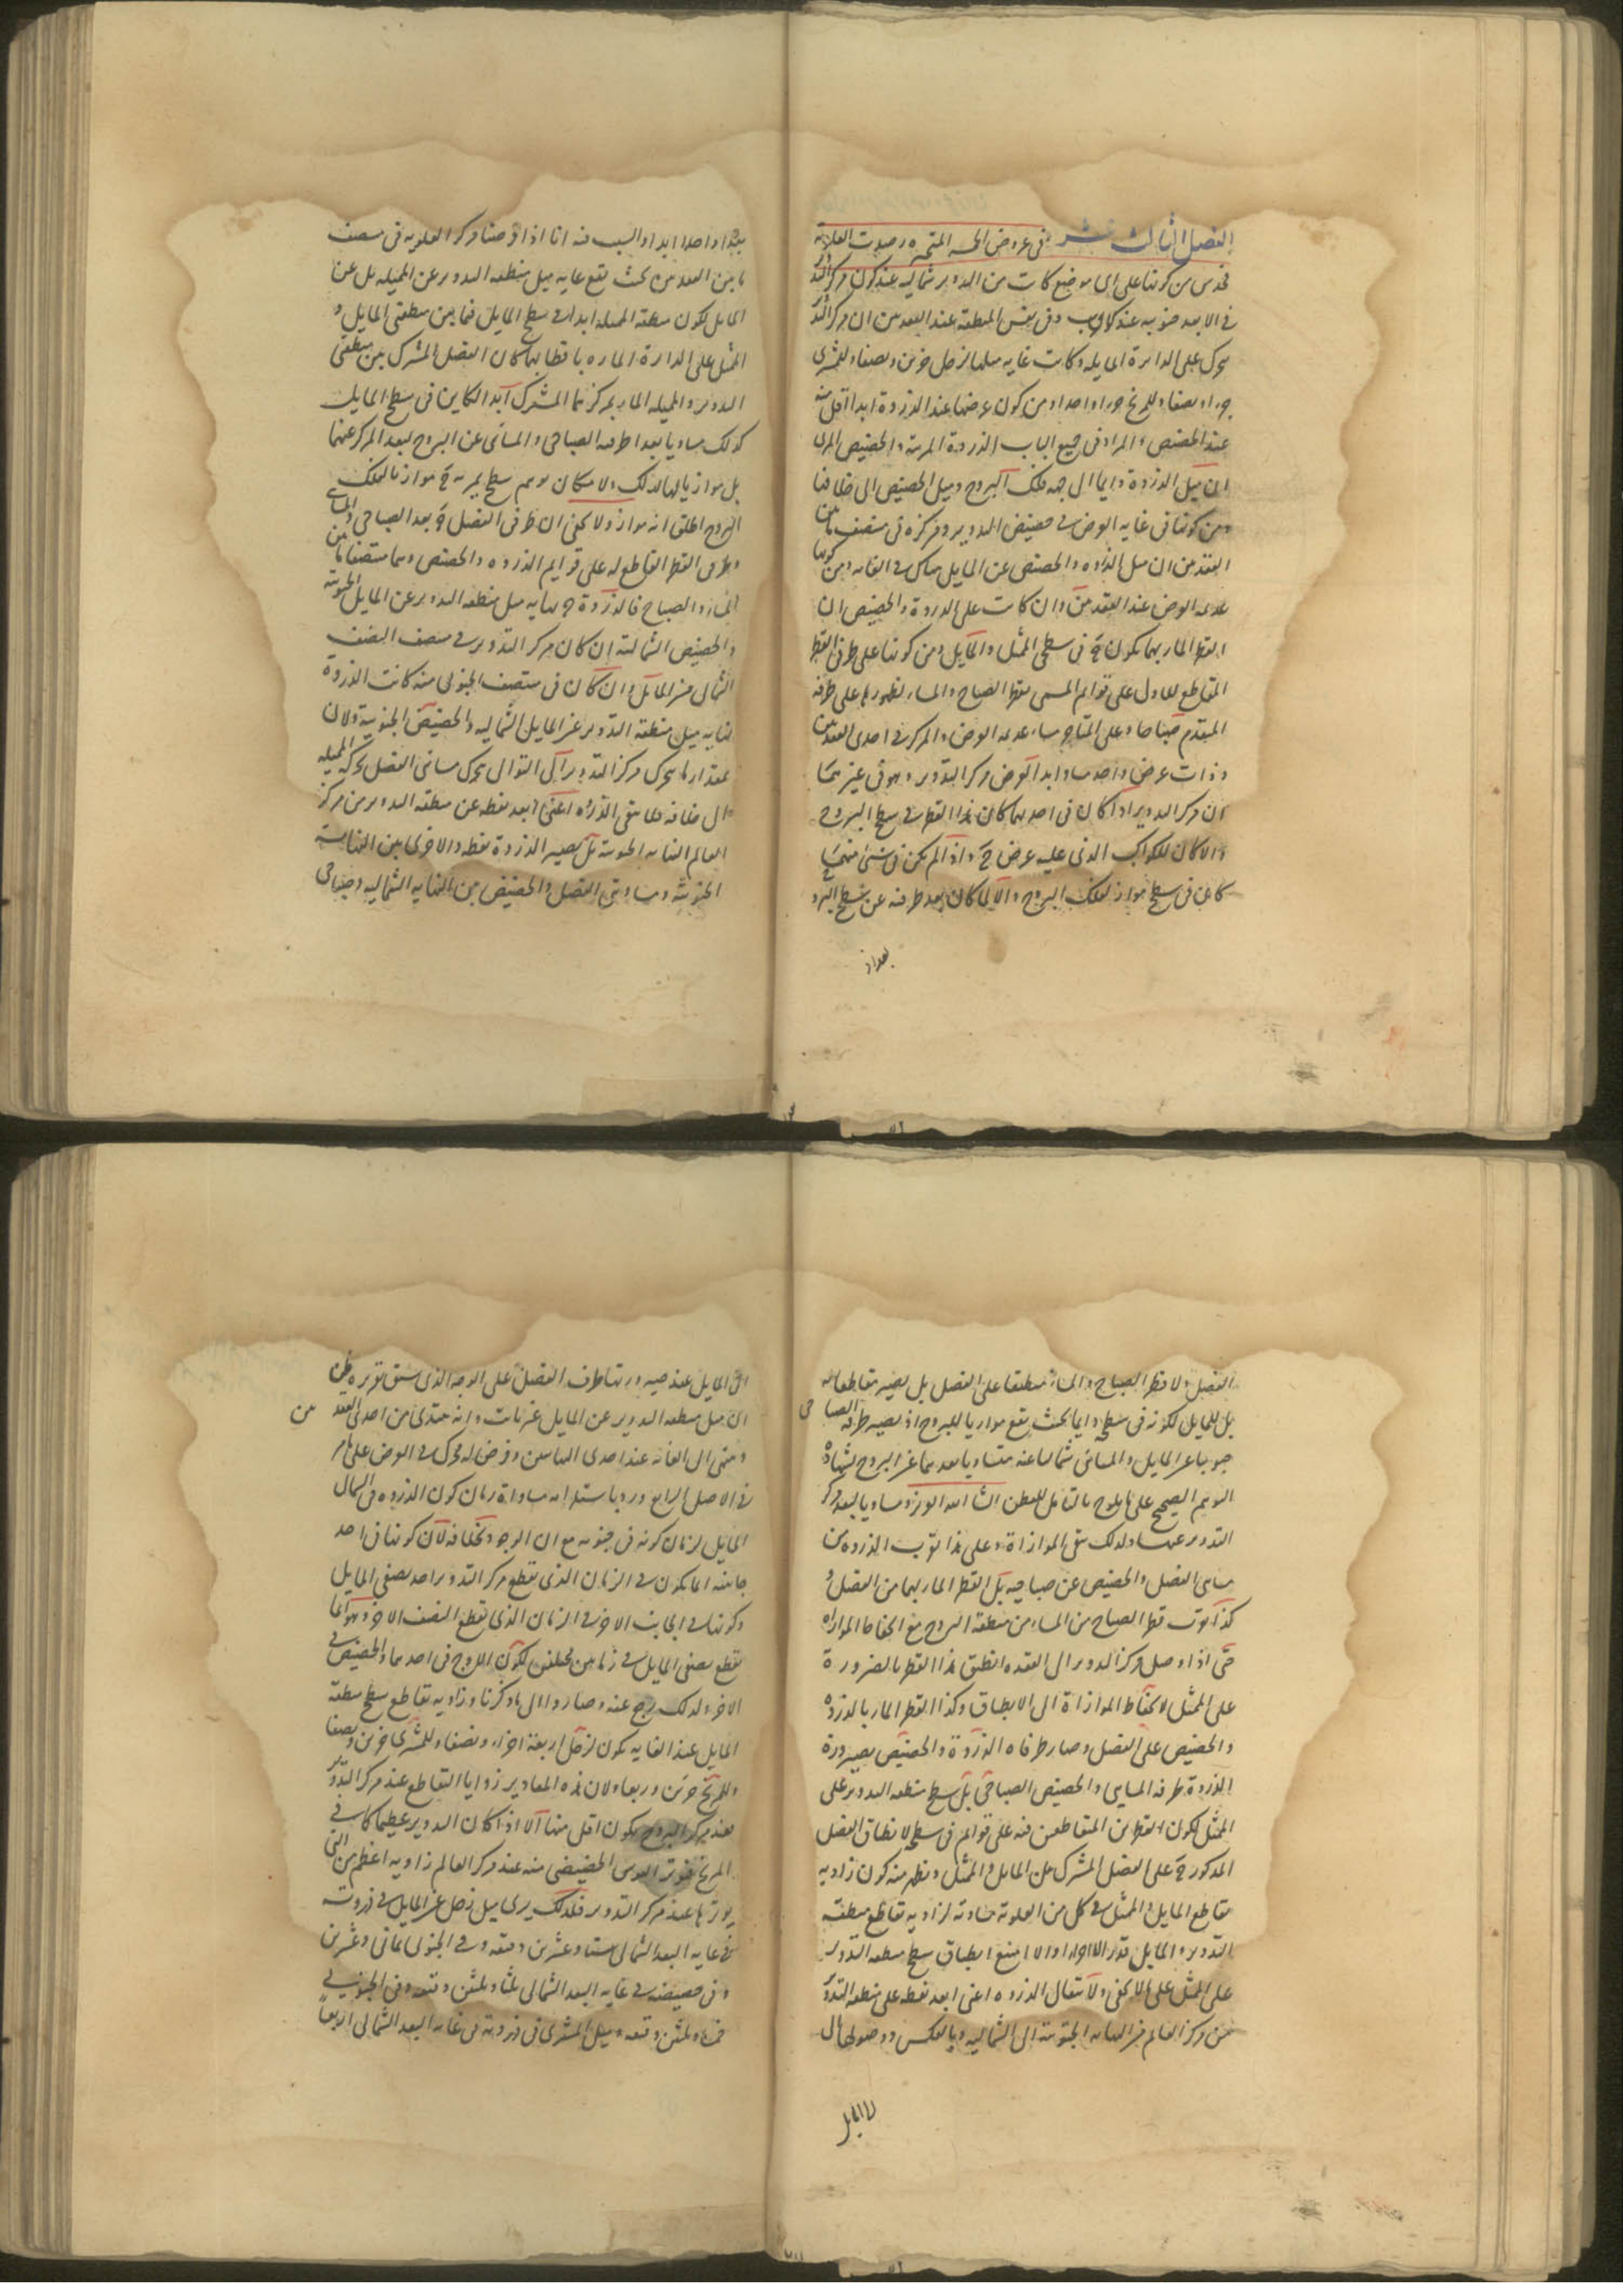 الفصل الثالث عشر فى عروض الخمسة المتحيرة رصدت العلوية
فحدس من كونها على اى موضع كانت من التدوير شمالية عند كون مركز التدوير
فى الابعد جنوبية عند كونه وفى نفس المنطقة عند العقدتين ان مركز التدوير
يتحرك على الدايرة المايلة وكانت غاية ميلها لزحل جزئين ونصفا وللمشترى
جزءا ونصفا وللمريخ جزءا واحدا ومن كون عرضها عند الذروة ابدا اقل منه
عند الحضيض والمراد فى جميع الباب الذروة المرئية والحضيض المرئى
ان ميل الذروة دايما الى جهة فلك البروج وميل الحضيض الى خلافها
ومن كونها فى غاية العرض فى حضيض التدوير ومركزه فى منتصف ما بين
العقدتين ان ميل الذروة والحضيض عن المايل هناك فى الغاية ومن كونها
عديمة العرض عند العقدتين وان كانت على الذروة والحضيض ان
القطر المار بهما يكون ح فى سطحى الممثل والمايل ومن كونها على طرفى القطر
المقاطع للاول على قوايم المسمى بقطر الصباح والمساء لظهورها على طرفه
المتقدم صباحا وعلى المتاخر مساء عديمة العرض والمركز فى احدى العقدتين
وذات عرض واحد مساو ابدا لعرض مركز التدوير وهو فى غيرهما
ان مركز التدوير اذا كان فى احديهما كان هذا القطر فى سطح البروج
والا كان للكواكب الذى عليه عرض ح واذا لم يكن فى شئ منهما
كاين فى سطح مواز لفلك البروج والا لما كان بعد طرفيه عن سطح البروج
بمقدار
بعدا واحدا ابدا والسبب فيه انا اذا فرضنا مركز العلوية فى منتصف
ما بين العقدتين بحيث تقع غاية ميل منطقة التدوير عن المميلة بل عن
المايل لكون منطقة المميلة ابدا فى سطح المايل فيما بين منطقتى المايل و
الممثل على الدايرة المارة باقطابهما كان الفصل المشترك بين منطقتى
التدوير والمميلة المار بمركزهما المشترك ابدا الكاين فى سطح المايل
كذلك مساويا بعدا طرفيه الصباحى والمسائى عن البروج لبعد المركز عنها
بل موازيا لها لذلك ولامكان توهم سطح يمر به ح مواز لفلك
البروج اطلق انه مواز ولا يخفى ان طرفى الفصل ح بعد الصباحى والمسائى
وطرفى القطر القاطع له على قوايم الذروة والحضيض وهما منتصفا ما بين
المساء والصباح فالذروة نهاية ميل منطقة التدوير عن المايل الجنوبية
والحضيض الشمالية ان كان مركز التدوير فى منتصف النصف
الشمالى من المايل وان كان فى منتصف الجنوبى منه كانت الذروة
نهاية ميل منطقة التدوير عن المايل الشمالية والحضيض الجنوبية ولان
بمقدار ما يتحرك مركز التدوير الى التوالى يتحرك مسائى الفصل بحركة المميلة
الى خلافه فلا يبقى الذروة اعنى ابعد نقطة عن منطقة التدوير من مركز
العالم النهاية الجنوبية بل يصير الذروة نقطة والاخرى بين النهاية
الجنوبية ومسائى الفصل والحضيض بين النهاية الشمالية وصباحى
الفصل ولا قطر الصباح والمساء منطبقا على الفصل بل يصير مقاطعا له
بل للمايل لكونه فى سطحه دايما بحيث يقع موازيا للبروج اذ يصير طرفه الصباحى
جنوبيا عن المايل والمسائى شماليا عنه متساويا بعدهما عن البروج بشهادة
التوهم الصحيح على ما يلوح بالتامل للفطن اذا اله الوزن ومساويا لبعد مركز
التدوير عنها ولذلك تبقى الموازاة وعلى هذا تقرب الذروة من
مسائى الفصل والحضيض عن صباحيه بل القطر المار بهما من الفصل و
كذا تقرب قطر الصباح من المساء من منطقة البروج مع انحفاظ الموازاة
حتى اذا وصل مركز التدوير الى العقدة انطبق هذا القطر بالضرورة
على الممثل لانحفاظ الموازاة الى الانطباق وكذا القطر المار بالذروة
والحضيض على الفصل وصار طرفاه الذروة والحضيض بصيرورة
الذروة طرفه المسائى والحضيض الصباحى بل سطح منطقة التدوير على
الممثل لكون القطرين المتقاطعين فيه على قوايم فى سطحه لانطباق الفصل
المذكور ح على الفصل المشترك بين المايل والممثل ويظهر منه كون زاوية
تقاطع المايل والممثل فى كل من العلوية مساوية لزاوية تقاطع منطقة
التدوير والمايل قدرا والا امتنع انطباق سطح منطقة التدوير
على الممثل على ما لا يخفى ولانتقال الذروة اعنى ابعد نقطة على منطقة التدوير
من مركز العالم من النهاية الجنوبية الى الشمالية وبالعكس ووصولها الى
المايل
الى المايل عند صيرورتها طرف الفصل على الوجه الذى سبق تقريره ظن
ان ميل منطقة التدوير عن المايل غير ثابت وانه يبتدى من احدى العقدتين
وينتهى الى الغاية عند احدى النهايتين وفرض له محرك فى العرض على ما مر
فى الاصل الرابع ورد باستلزامه مساواة زمان كون الذروة فى شمال
المايل لزمان كونه فى جنوبه مع ان الوجود بخلافه لان كونها فى احد
جانبيه انما يكون فى الزمان الذى تقطع مركز التدوير احد نصفى المايل
وكونها فى الجانب الاخر فى الزمان الذى تقطع النصف الاخر وهو انما
تقطع نصفى المايل فى زمانين مختلفين لكون الاوج فى احدهما والحضيض فى
الاخر ولذلك رجع عنه وصاروا الى ما ذكرنا وزاوية تقاطع سطح منطقة
المايل عند الغاية يكون لزحل اربعة اجزاء ونصفا وللمشترى جزئين ونصفا
وللمريخ جزئين وربعا ولان هذه المقادير زوايا التقاطع عند مركز التدوير
فعند مركز البروج يكون اقل منها الا اذا كان التدوير عظيما كما فى
المريخ فوتر القوس الحضيضى منه عند مركز العالم زاوية اعظم من التى
يوترها عند مركز التدوير فلذلك يرى ميل زحل عن المايل فى ذروته
فى غاية البعد الشمالى ستا وعشرين دقيقة وفى الجنوبى ثمانى وعشرين
وفى حضيضه فى غاية البعد الشمالى ثلثا وثلثين دقيقة وفى الجنوبى
خمسا وثلثين دقيقة وميل المشترى فى ذروته فى غاية البعد الشمالى اربعا